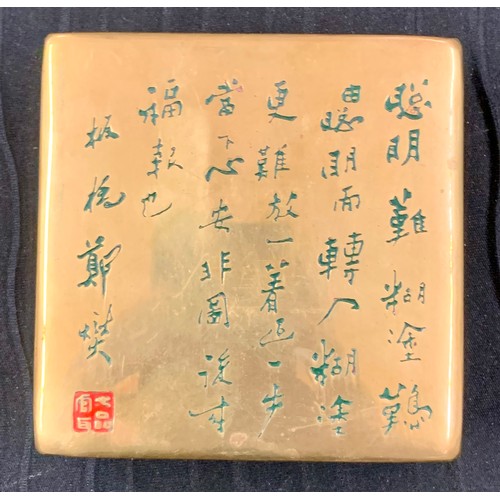 聰明難糊塗難
由聰明而轉入糊塗
更難放一着退一步
當下心安非圖後來
福報也
板橋鄭燮
七品官耳